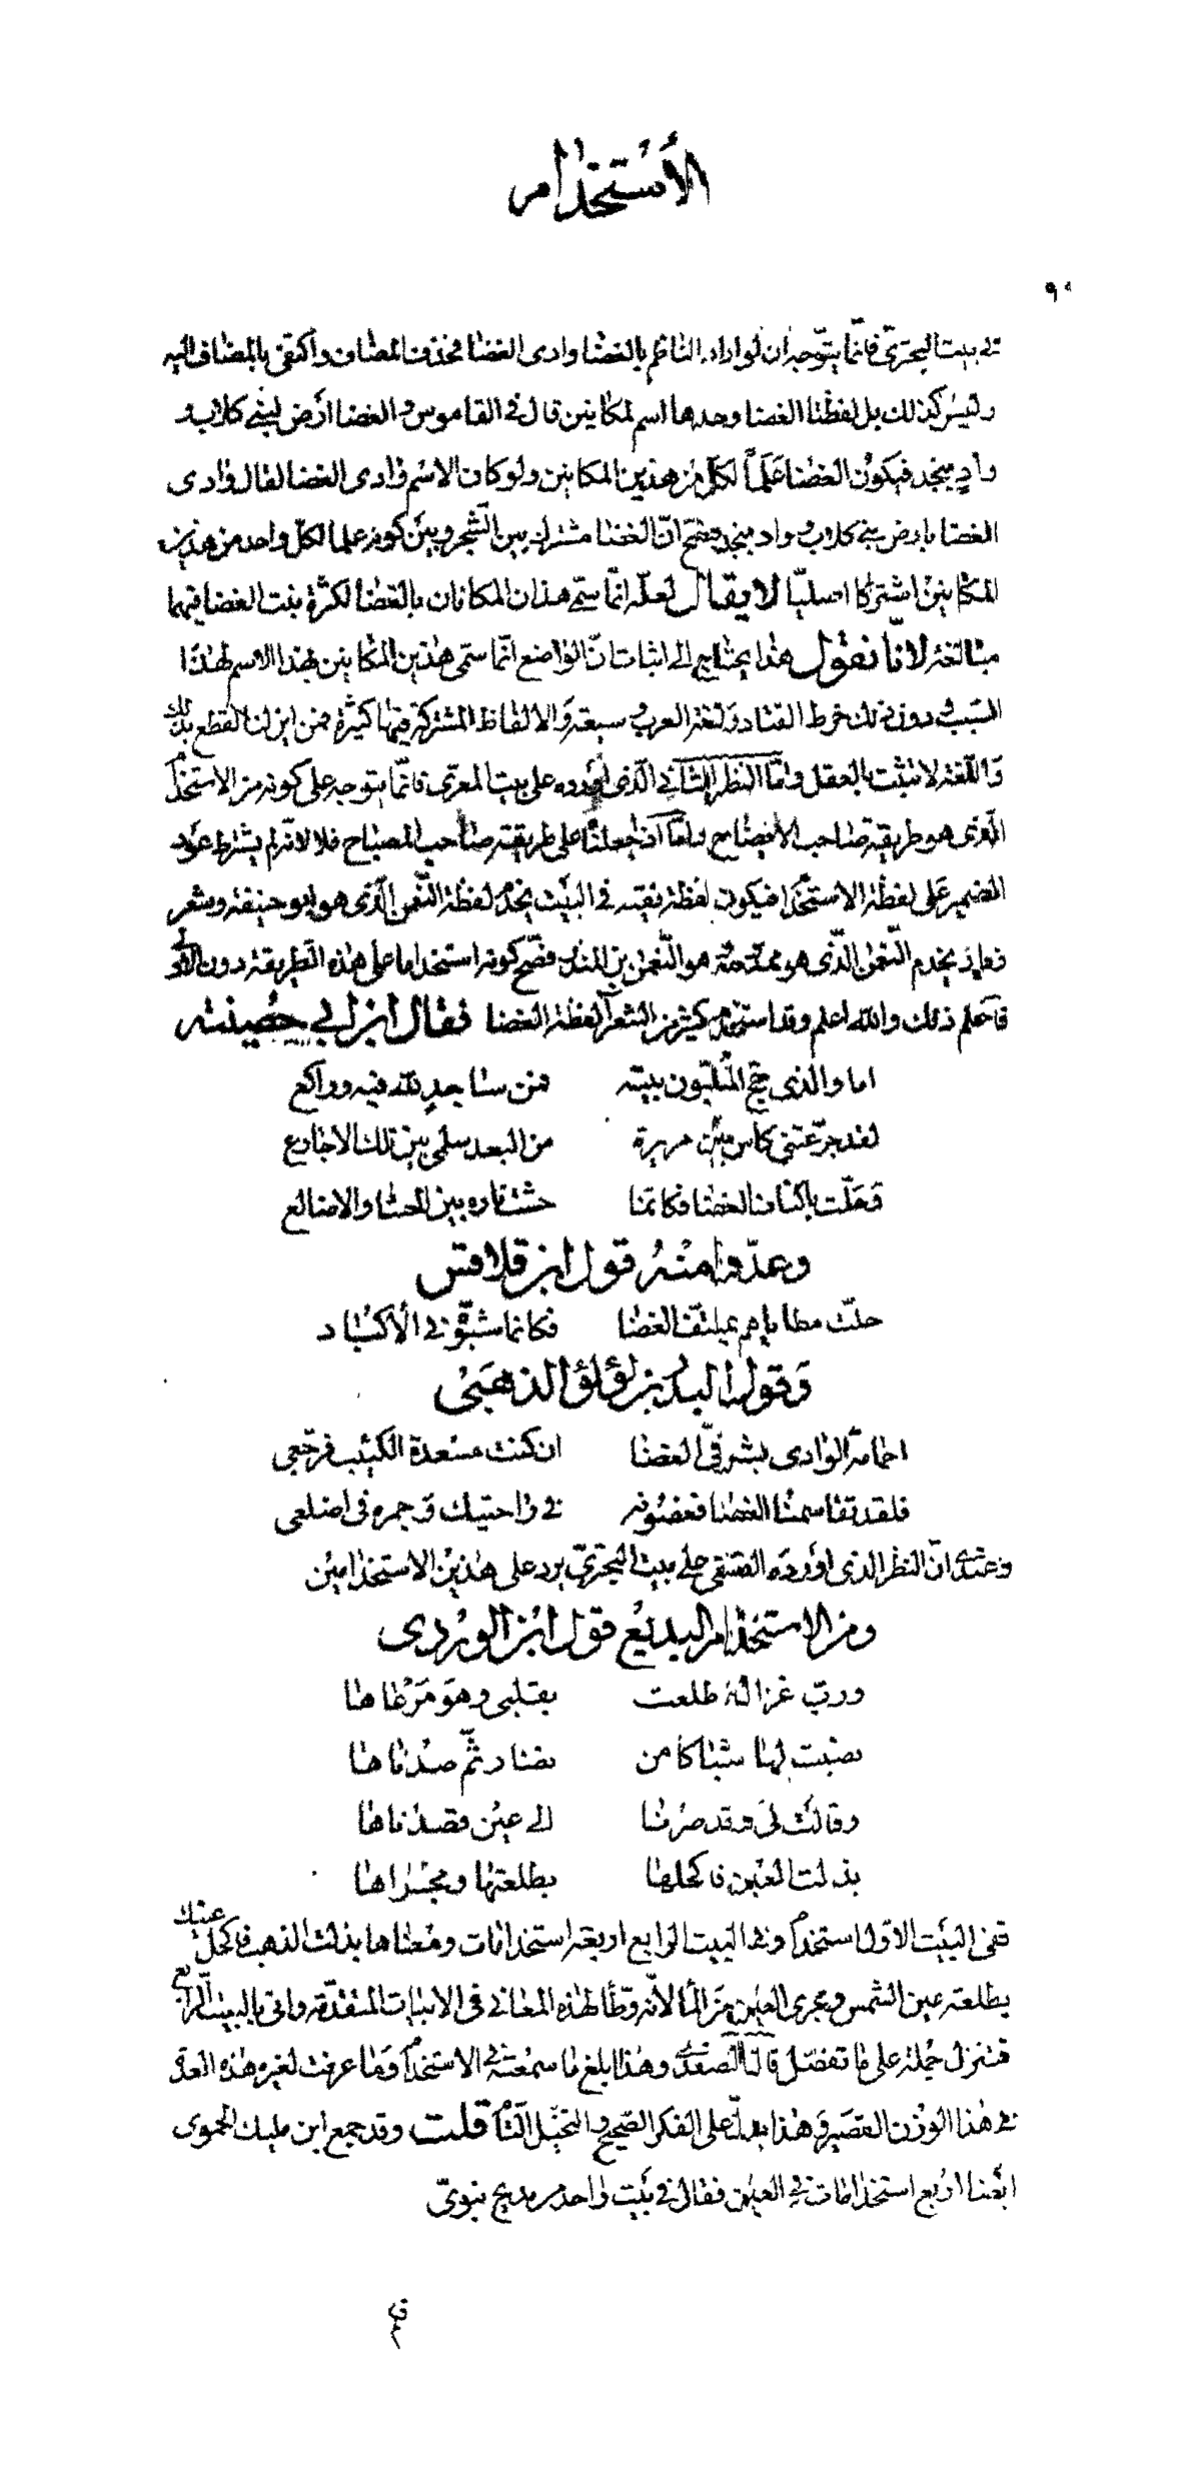 الاستخدام
٩
في بيت البحتري فانما يتوجه ان لو اراد الناظم بالغضا وادي الغضا فحذف المضاف واكتفى بالمضاف اليه
وليس كذلك بل لفظة الغضا وحدها اسم لمكانين قال في القاموس والغضا أرض لبني كلاب و
وادٍ بنجد فيكون الغضا عَلَماً لكل من هذين المكانين ولو كان الاسم وادي الغضا لقال وادي
الغضا بارض بني كلاب وواد بنجد فصح انّ الغضا مشترك بين الشجر وبين كونه علما لكل واحد من هذين
المكانين اشتراكا اصليّا لا يقال لعلّه انما سمي هذان المكانان بالغضا لكثرة نبت الغضا فيهما
مبالغة لانّا نقول هذا يحتاج الى اثبات انّ الواضع انما سمى هذين المكانين بهذا الاسم لهذا
السبب ودون ذلك خرط القتاد ولغة العرب وسيعة والالفاظ المشتركة فيها كثيرة فمن اين لنا القطع بذلك
واللغة لا تثبت بالعقل وامّا النظر الثاني الذي اورده على بيت المعري فانما يتوجه على كونه من الاستخدام
الذي هو طريقة صاحب الايضاح وامّا اذا جعلنا على طريقة صاحب المصباح فلا لانه لم يشترط عود
الضمير على لفظة الاستخدام فيكون لفظة فقيه في البيت يخدم لفظة النعمن الذي هو ابو حنيفة وشعر
زياد يخدم النعمن الذي هو ممدوحه هو النعمن بن المنذر فصح كونه استخداما على هذه الطريقة دون الاولى
فاعلم ذلك والله اعلم وقد استخدم كثير من الشعرآ لفظة الغضا فقال ابن ابي حصينه
اما والذي حج الملبّون بيته فمن ساجدٍ لله فيه وراكع
لقد جرّعتني كأس بين مريرة من البعد سلمى بين تلك الاجارع
وحلّت باكناف الغضا فكانما حشت ناره بين الحشا والاضالع
وعدّوا منه قول ابن قلاقس
حلّت مطاياهم بملتف الغضا فكانما شبّوه في الأكباد
وقول البدر بن لؤلؤ الذهبي
احمامة الوادي بشرقيّ الغضا ان كنت مسعدة الكئيب فرجّعي
فلقد تقاسمنا الغضا فغصونه في راحتيك وجمره في اضلعي
وعندي انّ النظر الذي اورده الصفدي على بيت البحتري يرد على هذين الاستخدامين
ومن الاستخدام البديع قول ابن الوردي
وربّ غزالة طلعت بقلبي وهو مَرْعاها
نصبت لها شباكا من نضار ثمّ صدناها
وقالت لي وقد صرنا الى عين قصدناها
بذلت العين فاكحلها بطلعتها ومجراها
ففي البيت الاول استخدام وفي البيت الرابع اربعة استخدامات ومعناها بذلت الذهب فاكحل عينك
بطلعة عين الشمس ومجرى العين من المآ لانّه وطّأ لهذه المعاني في الابيات المتقدّمة واتى بالبيت الرابع
فتنزل جملة على ما تفصّل قال الصفدي وهذا ابلغ ما سمعته في الاستخدام وما عرفت لغيره هذه العدّة
في هذا الوزن القصير وهذا يدلّ على الفكر الصحيح والتخيّل التام قلت وقد جمع ابن مليك الحموي
ايضا اربع استخدامات في العين فقال في بيت واحد من مديح نبويّ